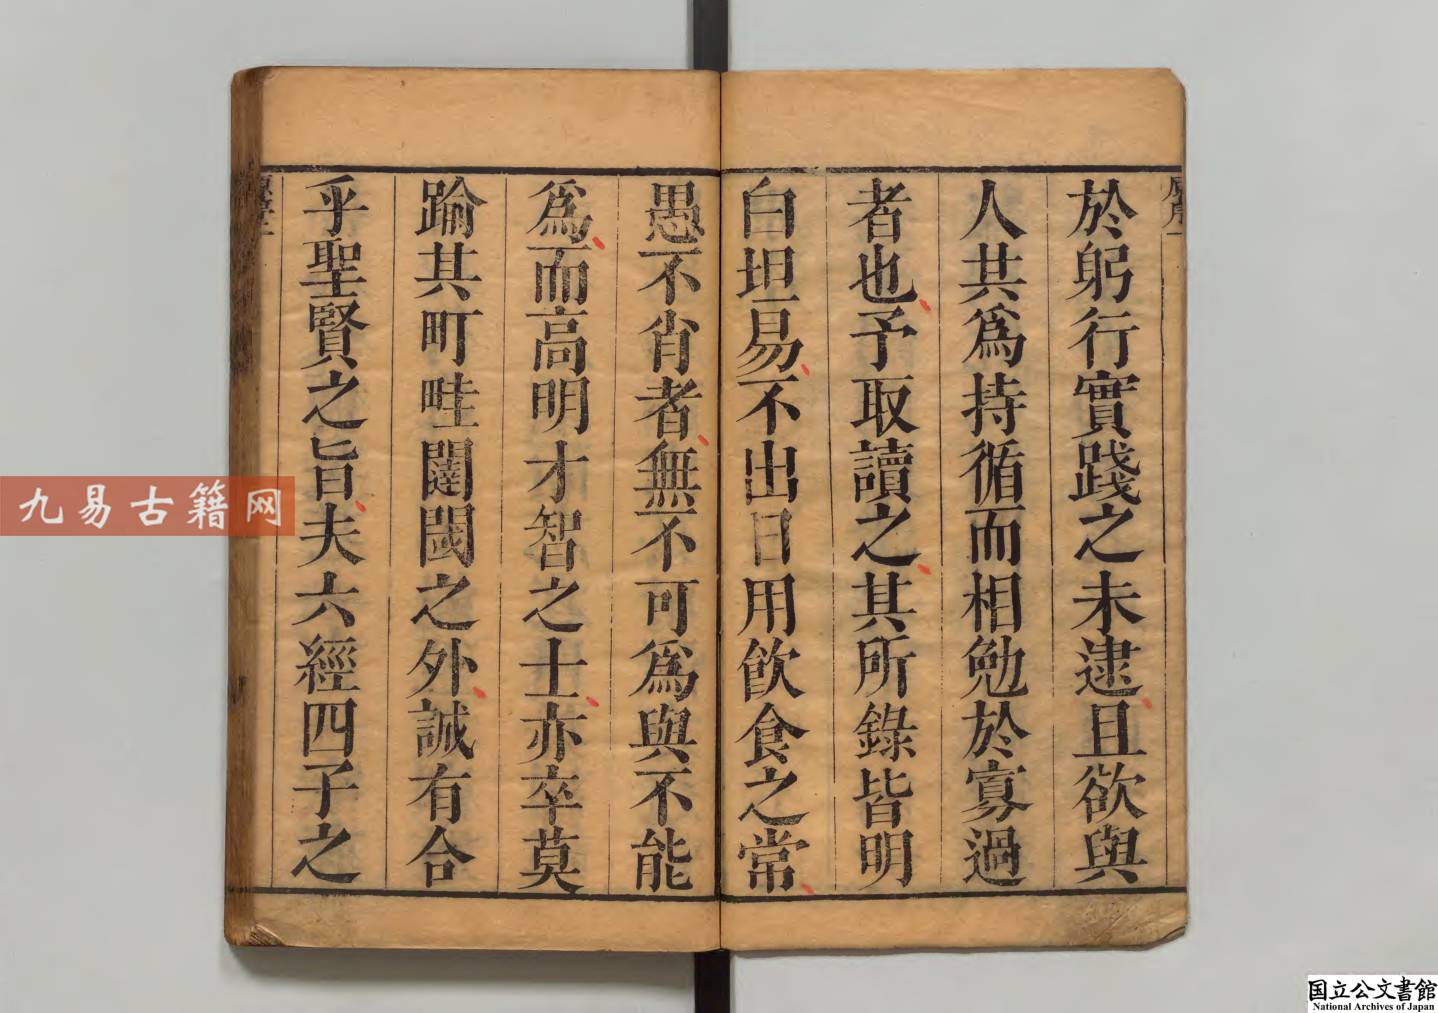 於躬行實踐之未逮且欲與
人共爲持循而相勉於寡過
者也予取讀之其所錄皆明
白坦易不出日用飲食之常
愚不肖者無不可爲與不能
爲而高明才智之士亦卒莫
踰其町畦闥閾之外誠有合
乎聖賢之旨夫六經四子之
九易古籍网
国立公文書館
National Archives of Japan